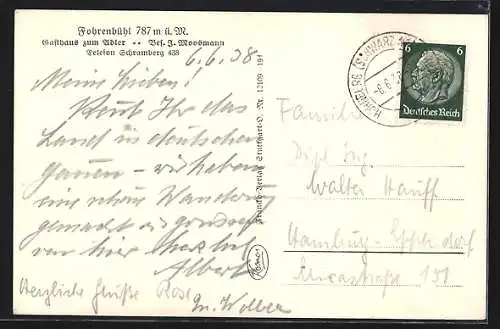 Fohrenbühl 787 m ü. M.
Gasthaus zum Adler •• Bes. J. Moosmann
Telefon Schramberg 438
6.6.38
Meine Lieben!
Kennt Ihr das
Land in deutschen
Gauen - wir haben
eine schöne Wanderung
gemacht und
von hier herzlichst
Albert
Herzliche Grüße Rose
Franckh-Verlag Stuttgart-O. Nr. 12109
HORNBERG (SCHWARZWALD
-6.6.3
6 6
Deutsches Reich
Familie
Dipl. Ing.
Walter Hauff
Hamburg-Eppendorf
151